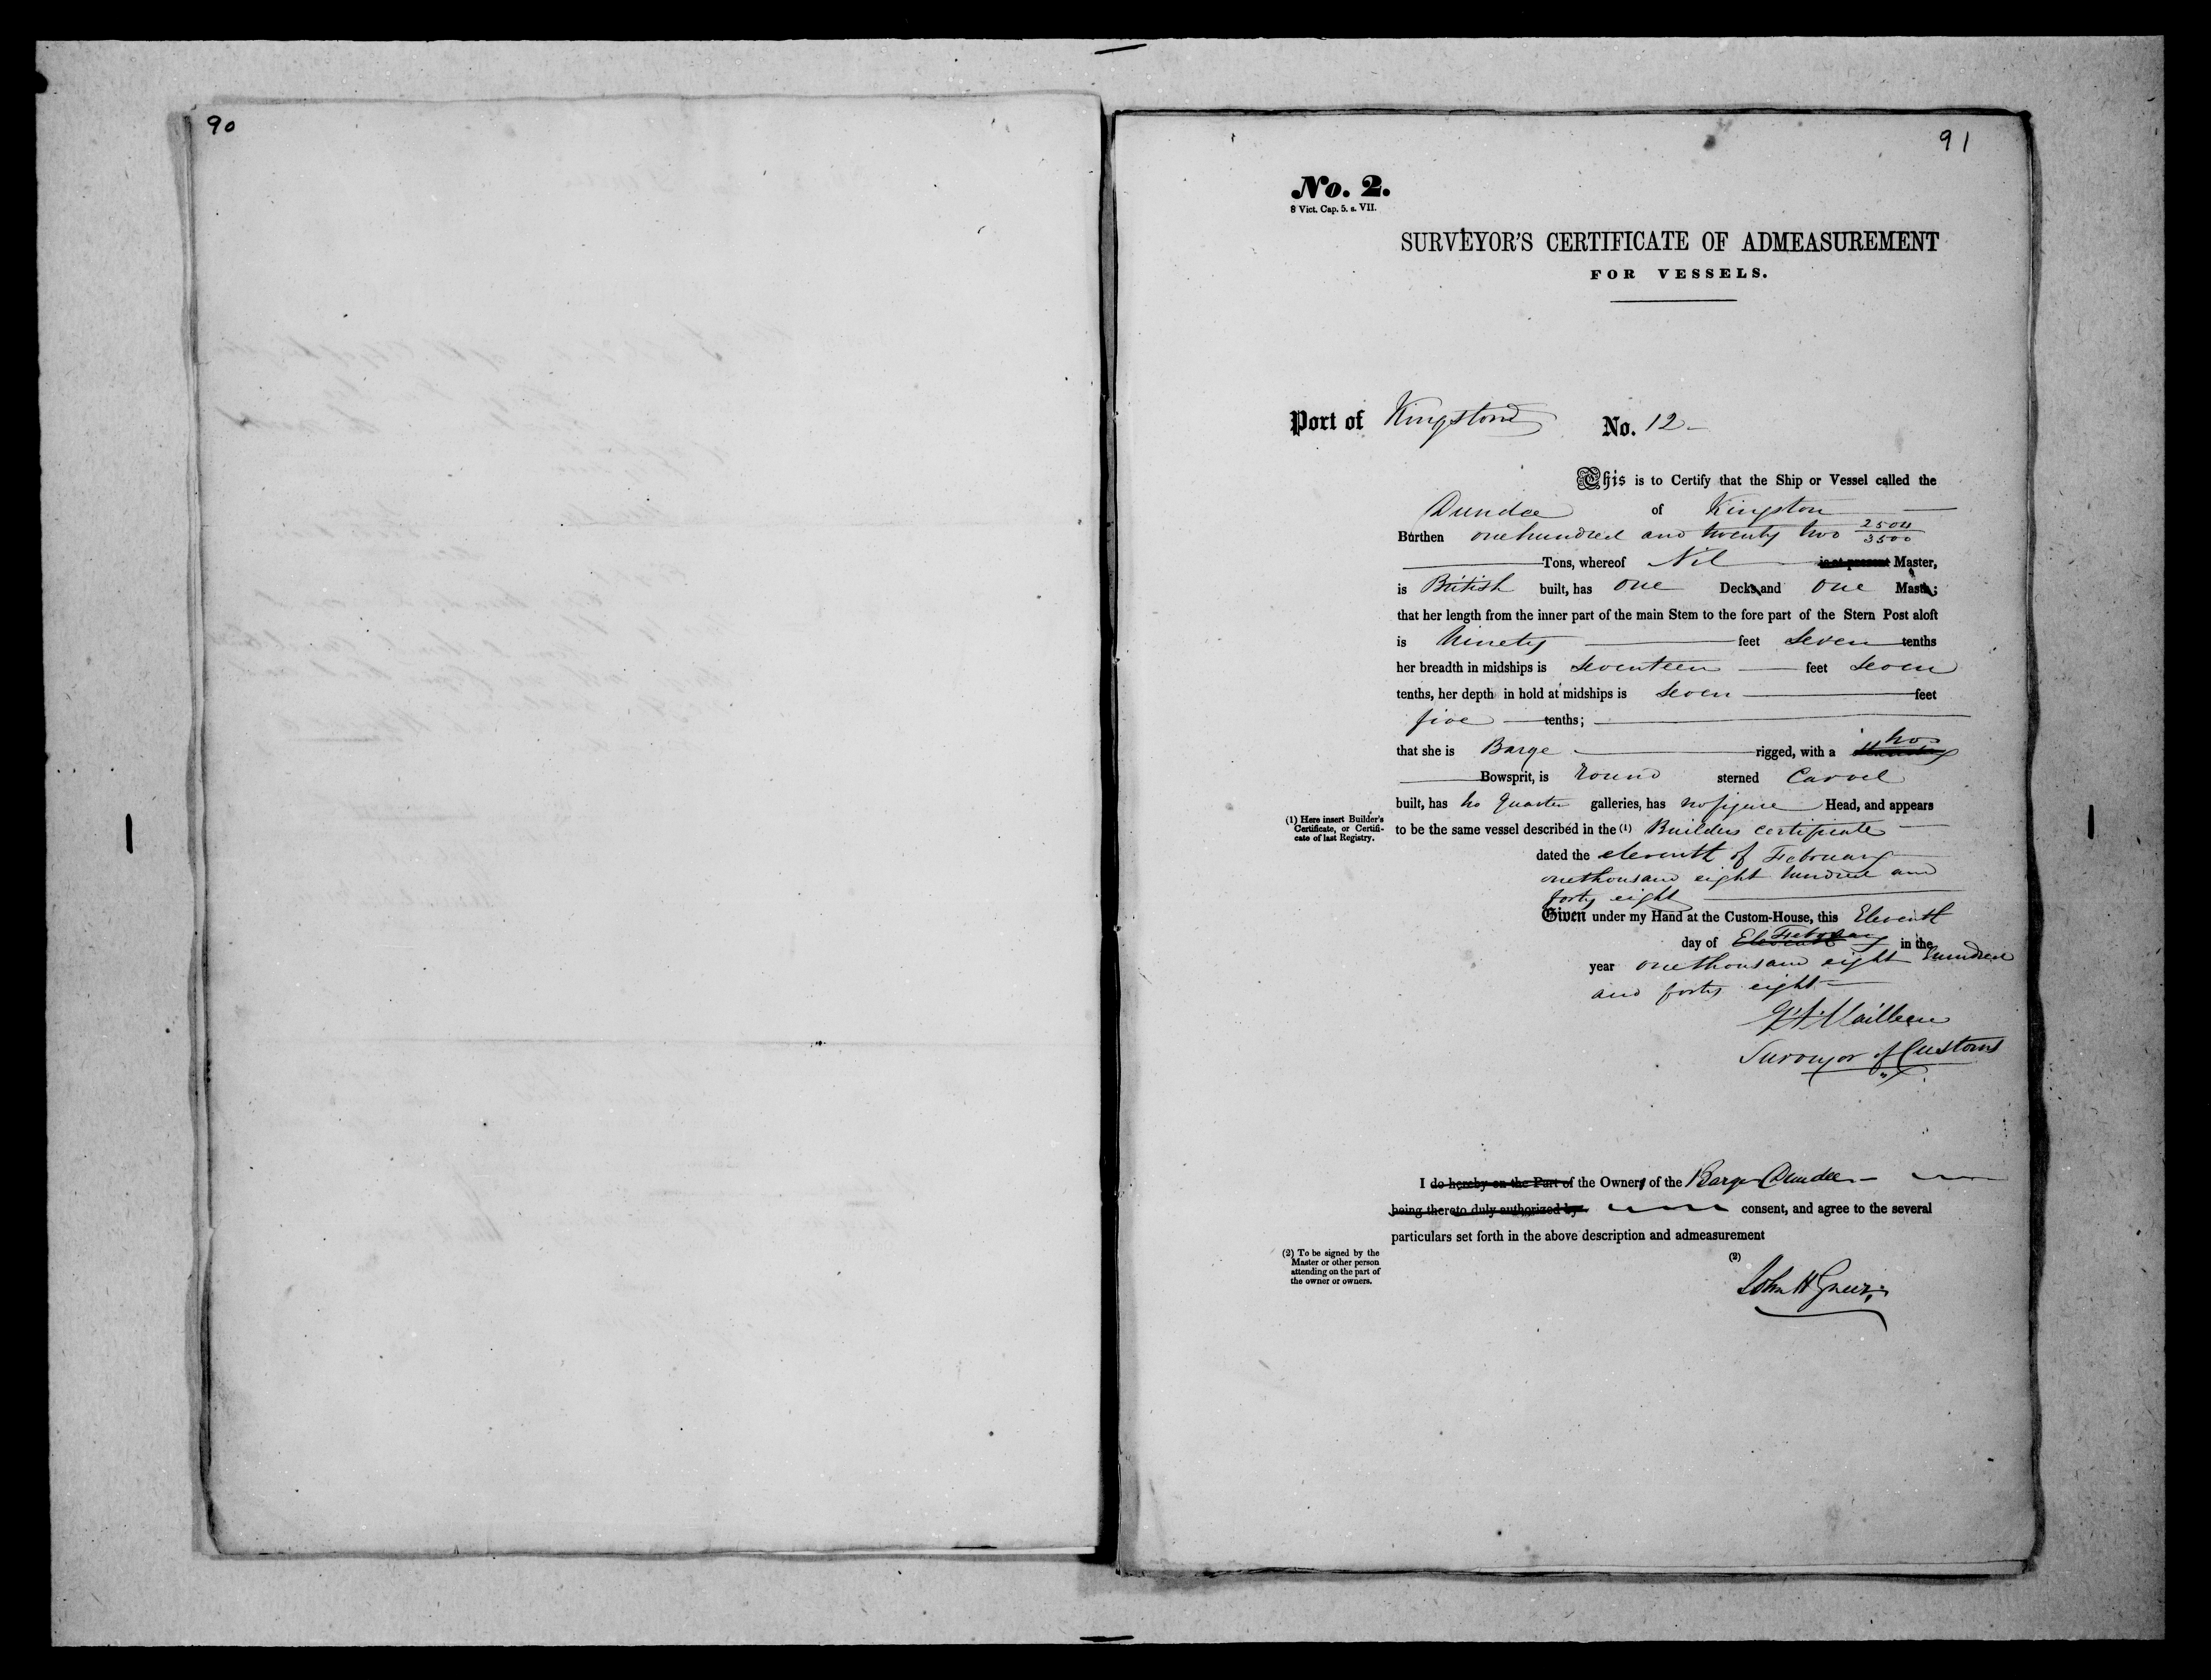 90
91
No. 2.
8 Vict. Cap. 5. s. VII.
SURVEYOR'S CERTIFICATE OF ADMEASUREMENT
FOR VESSELS.
Port of Kingston No. 12
This is to Certify that the Ship or Vessel called the
Dundee of Kingston
Burthen one hundred and twenty two 2504/3500
Tons, whereof Nil is at present Master,
is British built, has one Decks and one Masts;
that her length from the inner part of the main Stem to the fore part of the Stern Post aloft
is Ninety feet seven tenths
her breadth in midships is seventeen feet seven
tenths, her depth in hold at midships is seven feet
five tenths;
that she is Barge rigged, with a no
Bowsprit, is round sterned Carvel
built, has no quarter galleries, has no figure Head, and appears
(1) Here insert Builder's
Certificate, or Certifi-
cate of last Registry.
to be the same vessel described in the (1) Builders certificate
dated the eleventh of February
one thousand eight hundred and
forty eight
Given under my Hand at the Custom-House, this Eleventh
day of Eleventh February in the
year one thousand eight hundred
and forty eight
Surveyor of Customs
I do hereby on the Part of the Owners of the Barge Dundee
being thereto duly authorized by consent, and agree to the several
particulars set forth in the above description and admeasurement
(2) To be signed by the
Master or other person
attending on the part of
the owner or owners.
(2)
John H Greer